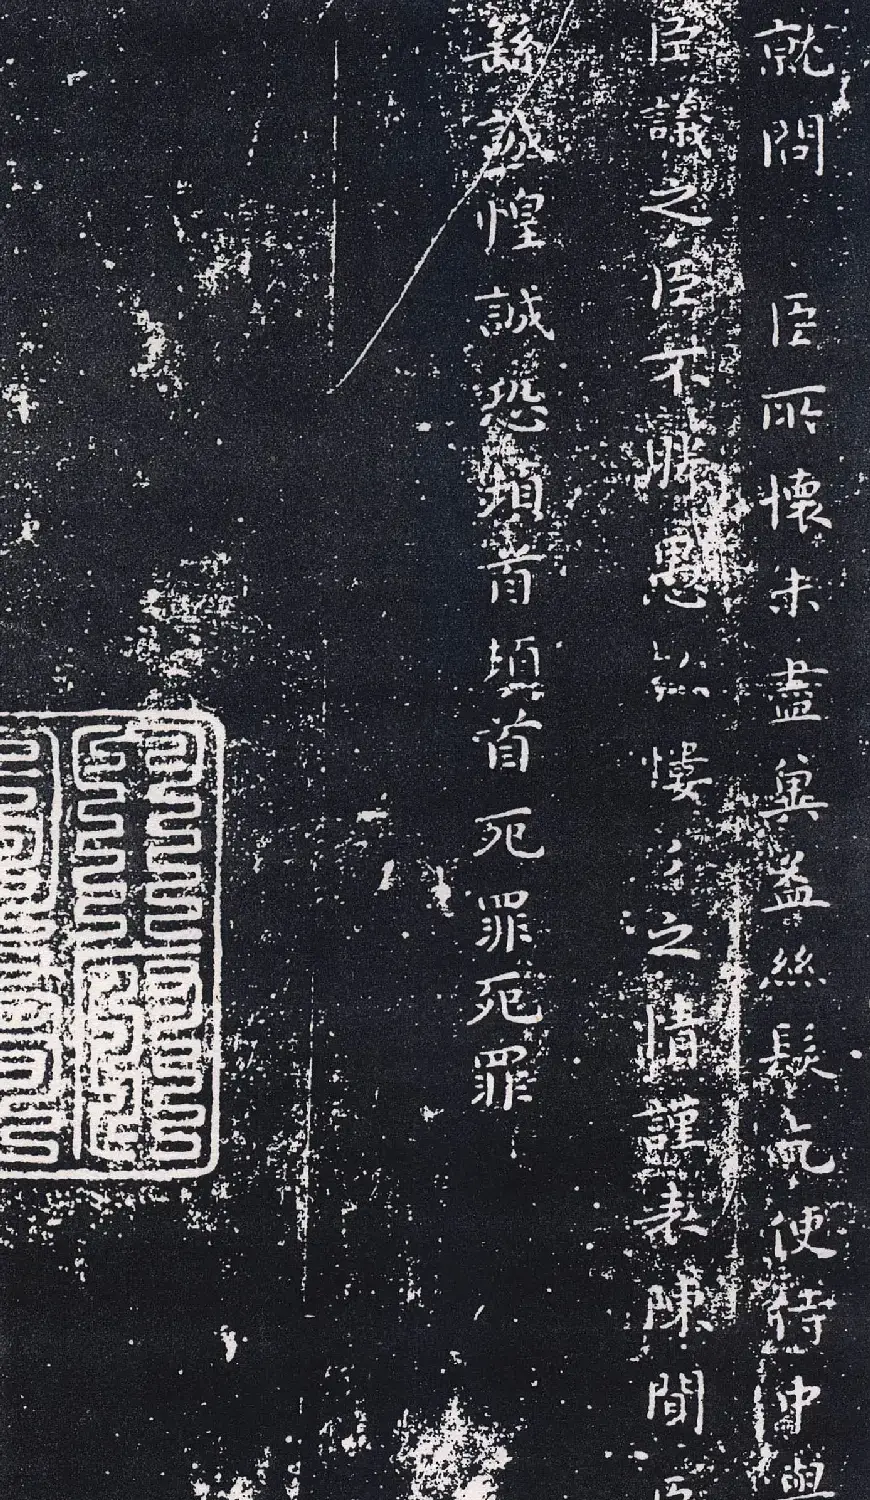 就問 臣所懷未盡冀益絲髮乞使侍中與
臣議之臣不勝愚款慺〻之情謹表陳聞臣
繇誠惶誠恐頓首頓首死罪死罪